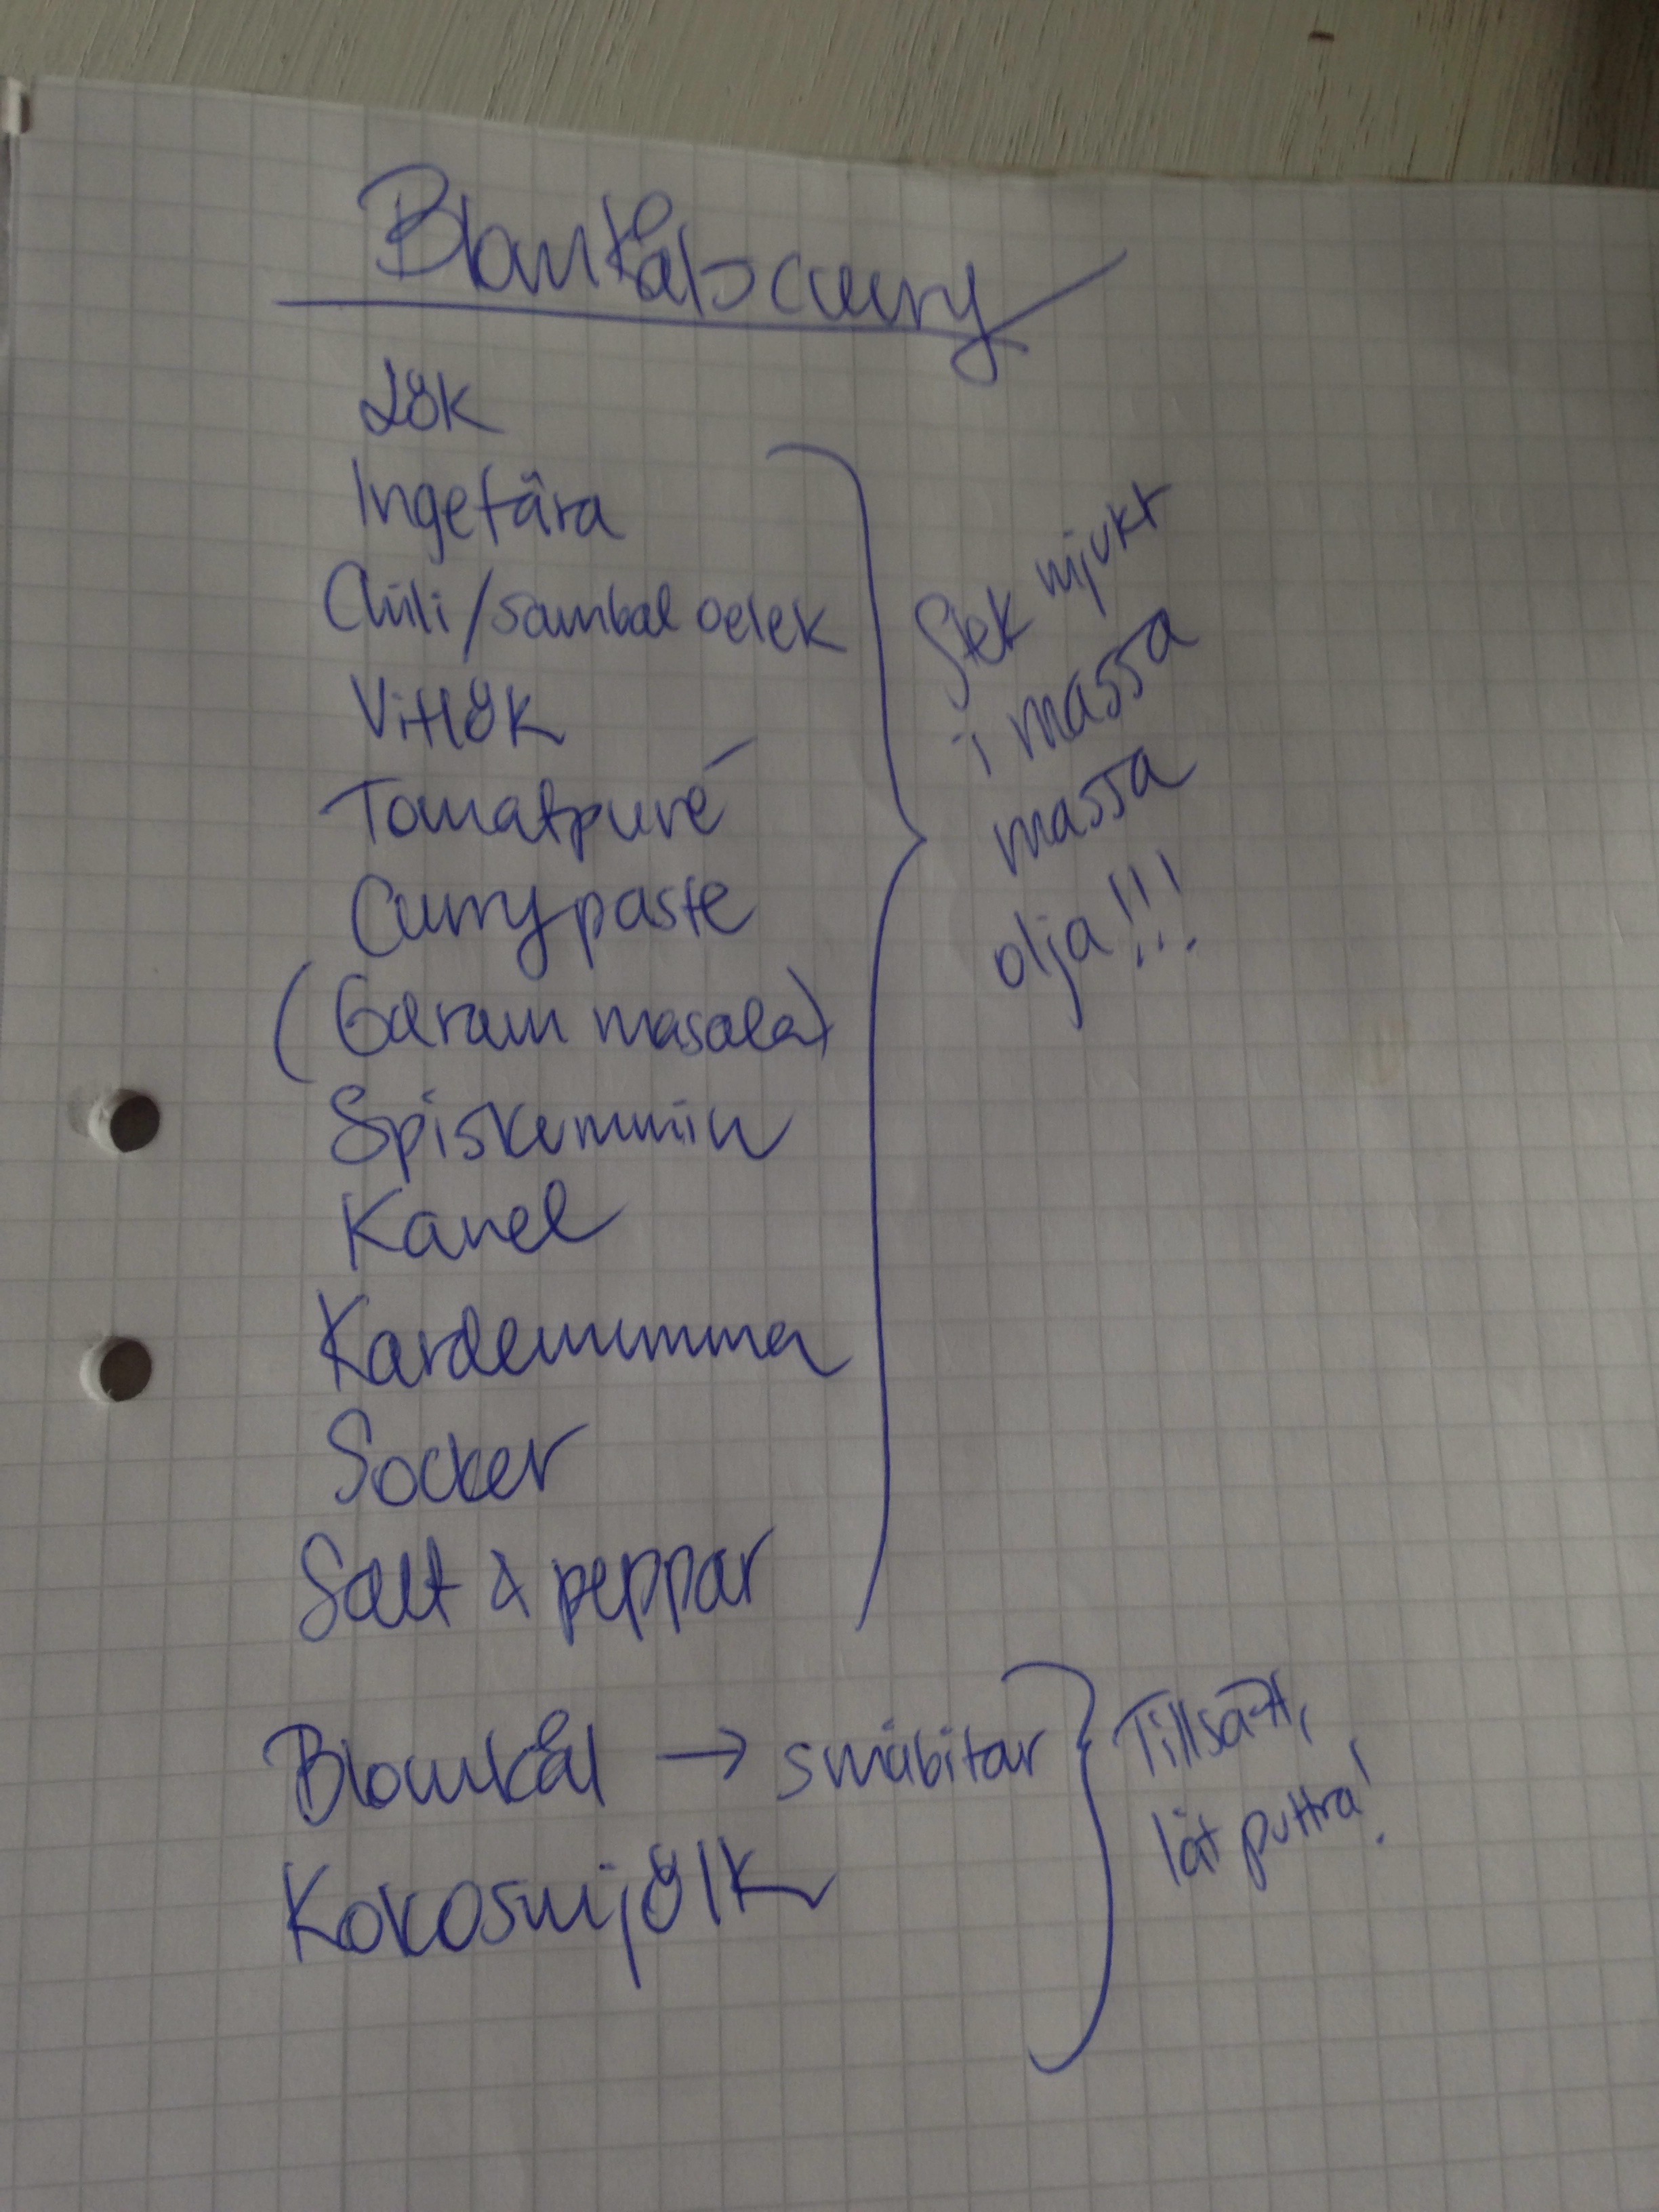 Blomkålscurry
Lök
Ingefära
Chili/sambal oelek
Vitlök
Tomatpuré
Currypaste
(Garam masala)
Spiskummin
Kanel
Kardemumma
Socker
Salt & peppar
Stek mjukt
i massa
massa
olja!!!
Blomkål → småbitar
Kokosmjölk
Tillsätt,
låt puttra!